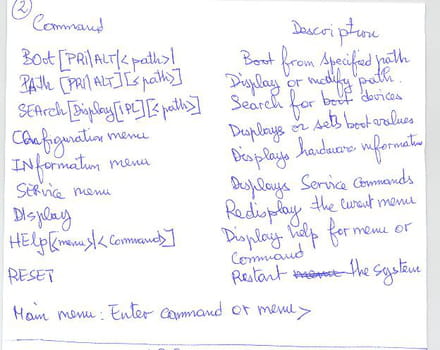 ②
Command Description
BOot [PRI|ALT|<path>] Boot from specified path
PAth [PRI|ALT][<path>] Display or modify path.
SEArch [Display|IPL][<path>] Search for boot devices
COnfiguration menu Displays or sets boot values
INformation menu Displays hardware information
SERvice menu Displays Service Commands
DIsplay Redisplay the current menu
HElp [<menu>|<Command>] Display help for menu or
Command
RESET Restart the system
Main menu: Enter command or menu>